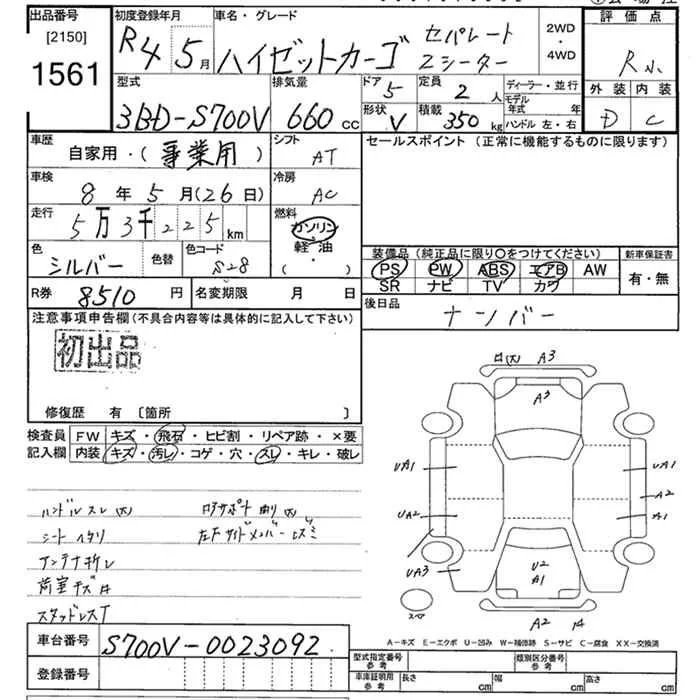 出品番号
[2150]
1561
初度登録年月
R4 5月
車名・グレード
ハイゼットカーゴ
セパレート
2シーター
2WD
・
4WD
評価点
R小
外装 内装
D C
型式
3BD-S700V
排気量
660 cc
ドア 5
定員 2 人
ディーラー・並行
モデル年式 年
形状 V
積載 350 kg
ハンドル 左・右
車歴
自家用・(事業用)
シフト
AT
セールスポイント(正常に機能するものに限ります)
車検
8年5月(26日)
冷房
AC
走行
5万3千225km
燃料
ガソリン
軽油
( ・ )
色
シルバー
色替
色コード
S28
装備品(純正品に限り〇をつけてください)
新車保証書
PS PW ABS エアB AW
SR ナビ TV カワ
有・無
R券 8510円
名変期限 月 日
後日品
ナンバー
注意事項申告欄(不具合内容等は具体的に記入して下さい)
初出品
修復歴 有 〔箇所 〕
検査員
記入欄
FW キズ・飛石・ヒビ割・リペア跡・×要
内装 キズ・汚レ・コゲ・穴・スレ・キレ・破レ
ハンドルスレ大
シートヘタリ
アンテナ折レ
荷室キズ
スタッドレスT
A3
A3
UA1
UA1
A2
UA2
A1
UA3
U2
A1
A2
スペア
A-キズ E-エクボ U-凹み W-補修跡 S-サビ C-腐食 XX-交換済
車台番号
S700V-0023092
登録番号
型式指定番号
参考
類別区分番号
参考
車庫証明用
参考
長さ cm
幅 cm
高さ cm